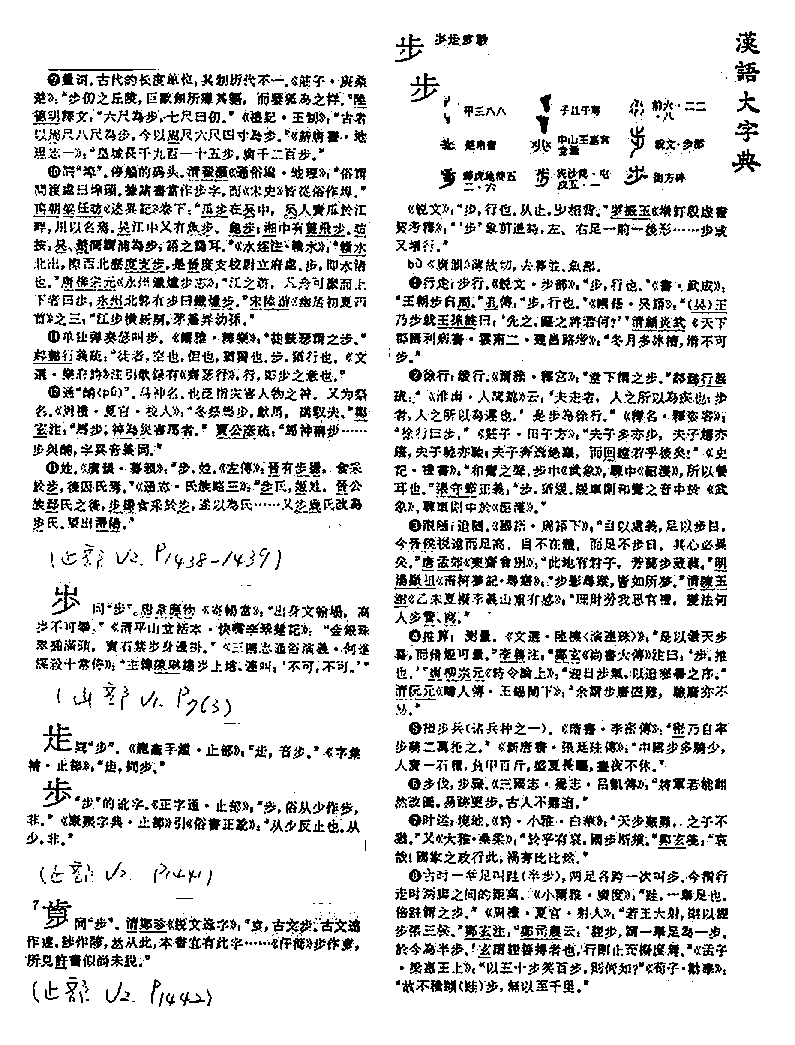 漢語大字典
步 步歨歩歱
步
甲三八八
子且午觶
前六·二二·八
楚帛書
中山王𧊒宮堂圖
説文·步部
睡虎地簡五二·六
武威簡·屯戍五·一
衡方碑
《説文》:“步,行也。从止、少相背。”羅振玉《增訂殷虚書契考釋》:“‘步’象前進時,左、右足一前一後形……步或
又增行。”
bù 《廣韻》薄故切,去暮並。魚部。
❶行走;步行。《説文·步部》:“步,行也。”《書·武成》:
“王朝步自周。”孔傳:“步,行也。”《國語·吳語》:“(吳)王
乃步就王孫雒曰:‘先之,圖之將若何?’”清顧炎武《天下
郡國利病書·雲南二·建昌路考》:“冬月多冰滑,滑不可
步。”
❷徐行;緩行。《爾雅·釋宮》:“堂下謂之步。”郝懿行義
疏:“《淮南·人間篇》云:‘夫走者,人之所以為疾也;步
者,人之所以為遲也。’是步為徐行。”《釋名·釋姿容》:
“徐行曰步。”《莊子·田子方》:“夫子步亦步,夫子趨亦
趨,夫子馳亦馳;夫子奔逸絶塵,而回瞠若乎後矣!”《史
記·禮書》:“和鸞之聲,步中《武象》,驟中《韶濩》,所以養
耳也。”張守節正義:“步,猶緩。緩車則和鸞之音中於《武
象》,驟車則中於《韶濩》。”
❸跟隨;追隨。《國語·周語下》:“目以處義,足以步目,
今晉侯視遠而足高,目不在體,而足不步目,其心必異
矣。”唐孟郊:“此地有君子,芳蘭步葳蕤。”明
湯顯祖《南柯夢記·尋寤》:“步影尋蹤,皆如所夢。”
❹推算;測量。《文選·陸機〈演連珠〉》:“是以儀天步
晷,而脩短可量。”李善注:“鄭玄《尚書大傳》注曰:‘步,推
也。’”唐柳宗元《時令論上》:“迎日步氣,以追寒暑之序。”
清阮元《疇人傳·王錫闡下》
❺指步兵(古兵种之一)。《隋書·李密傳》:“密乃自率
步騎二萬拒之。”《新唐書·張廷珪傳》:“中國步多騎少,
人齎一石糧,負甲百斤,盛夏長驅,晝夜不休。”
❻步伐,步驟。《三國志·蜀志·呂凱傳》:“將軍若能翻
然改圖,易跡更步,古人不難追。”
❼时运;境地。《詩·小雅·白華》:“天步艱難,之子不
猶。”又《大雅·桑柔》:“於乎有哀,國步斯頻。”鄭玄箋:“哀
哉!國家之政行此,禍害比比然。”
❽古时一举足叫跬(半步),两足各跨一次叫步。今指行
走时两脚之间的距离。《小爾雅·廣度》:“跬,一舉足也。
倍跬謂之步。”《周禮·夏官·射人》:“若王大射,則以貍
步張三侯。”鄭玄注:“鄭司農云:‘貍步,謂一舉足為一步,
於今為半步。’玄謂貍善搏者也,行則止而擬度焉。”《孟子
·梁惠王上》:“以五十步笑百步,則何如?”《荀子·勸學》:
“故不積頤(跬)步,無以至千里。”
❾量词。古代的长度单位,其制历代不一。《莊子·庚桑
楚》:“步仞之丘陵,巨獸無所隱其軀,而㜸狐為之祥。”陸
德明釋文:“六尺為步,七尺曰仞。”《禮記·王制》:“古者
以周尺八尺為步,今以周尺六尺四寸為步。”《新唐書·地
理志一》:“皇城長千九百一十五步,廣千二百步。”
❿同“埠”。停船的码头。清翟灝《通俗編·地理》:“俗謂
問渡處曰埠頭。據諸書當作步字,而《宋史》皆從俗作埠。”
南朝梁任昉《述異記》卷下:“瓜步在吳中,吳人賣瓜於江
畔,用以名焉。吳江中又有魚步、龜步;湘中有靈妃步。昉
按:吳、楚間謂浦為步,語之訛耳。”《水經注·贛水》:“贛水
北出,際西北歷度支步,是晉度支校尉立府處。步,即水渚
也。”唐柳宗元《永州鐵爐步志》:“江之滸,凡舟可縻而上
下者曰步,永州北郭有步曰鐵爐步。”
⓫单独弹奏瑟叫步。《爾雅·釋樂》:“徒鼓瑟謂之步。”
郝懿行義疏:“徒者,空也,但也,猶獨也。步,猶行也。
⓬通“酺(pú)”。马神名,也泛指灾害人物之神。又为祭
名。《周禮·夏官·校人》:“冬祭馬步,獻馬,講馭夫。”鄭
玄注:“馬步,神為災害馬者。”賈公彦疏:“馬神稱步……
步與酺,字異音義同。”
⓭姓。《廣韻·暮韻》:“步,姓。《左傳》:晉有步揚。食采
於步,後因氏焉。”《通志·氏族略三》:“步氏,姬姓。晉公
族郤氏之後,步揚食采於步,遂以為氏……又步鹿氏改為
步氏。望出濟陽。”
(止部 V2. P1438-1439)
同“步”。《清平山堂話本·快嘴李翠蓮記》:“金銀珠
翠插滿頭,寶石禁步身邊掛。”《三國志通俗演義·何進
謀殺十常侍》:“主簿陳琳趨步上堦,連叫:‘不可,不可。’”
(山部 V1. P7(3)
歨同“步”。《龍龕手鑑·止部》:“歨,音步。”《字彙
補·止部》:“歨,同步。”
歩“步”的讹字。《正字通·止部》:“歩,俗从少作步,
非。”《康熙字典·止部》引《俗書正譌》:“从少反止也,从
少,非。”
(止部 V2 P1441)
7
同“步”。清鄭珍《説文逸字》
(止部 V2. P1442)